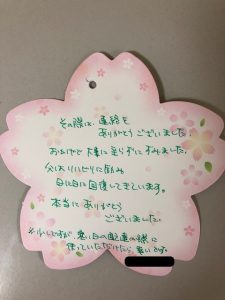 その際は、連絡を
ありがとうございました。
おかげで大事に至らずにすみました。
父はリハビリに励み
日に日に回復してきています。
本当にありがとう
ございました。
※少しですが、寒い日の配達の様に
使っていただけたら、幸いです。